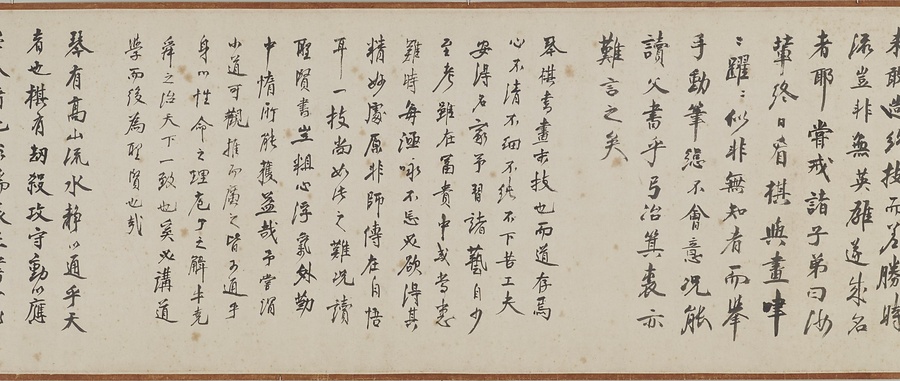 来敢
流豈非無英雄遂成名
者耶嘗戒諸子弟曰汝
輩終日看棋與畫津
津躍躍似非無知者而舉
手動筆總不會意况能
讀父書乎弓冶箕裘亦
難言之矣
琴棋書畫末技也而道存焉
心不清不細不純不下苦工夫
安得名家予習諸藝自少
至老雖在富貴中或當患
難時每涵咏不忘必欲得其
精妙處原非師傳在自悟
耳一技尚如此之難况讀
聖賢書豈粗心浮氣外勤
中惰所能獲益哉予嘗謂
小道可觀推而廣之皆可通乎
身心性命之理庖丁之解牛堯
舜之治天下一致也奚必講道
學而後為聖賢也哉
琴有高山流水靜以通乎天
者也棋有劫殺攻守動以應